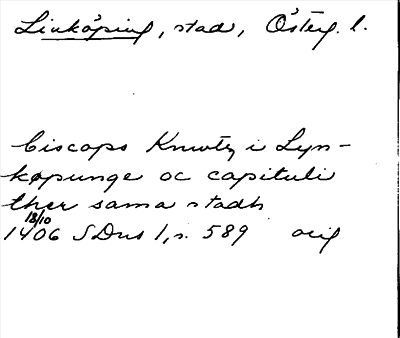 Linköping, stad, Österg. l.
biscops Knwtz i Lyn-
køpunge oc capituli
ther sama stadh
18/10
1406 SDns 1, s. 589 orig